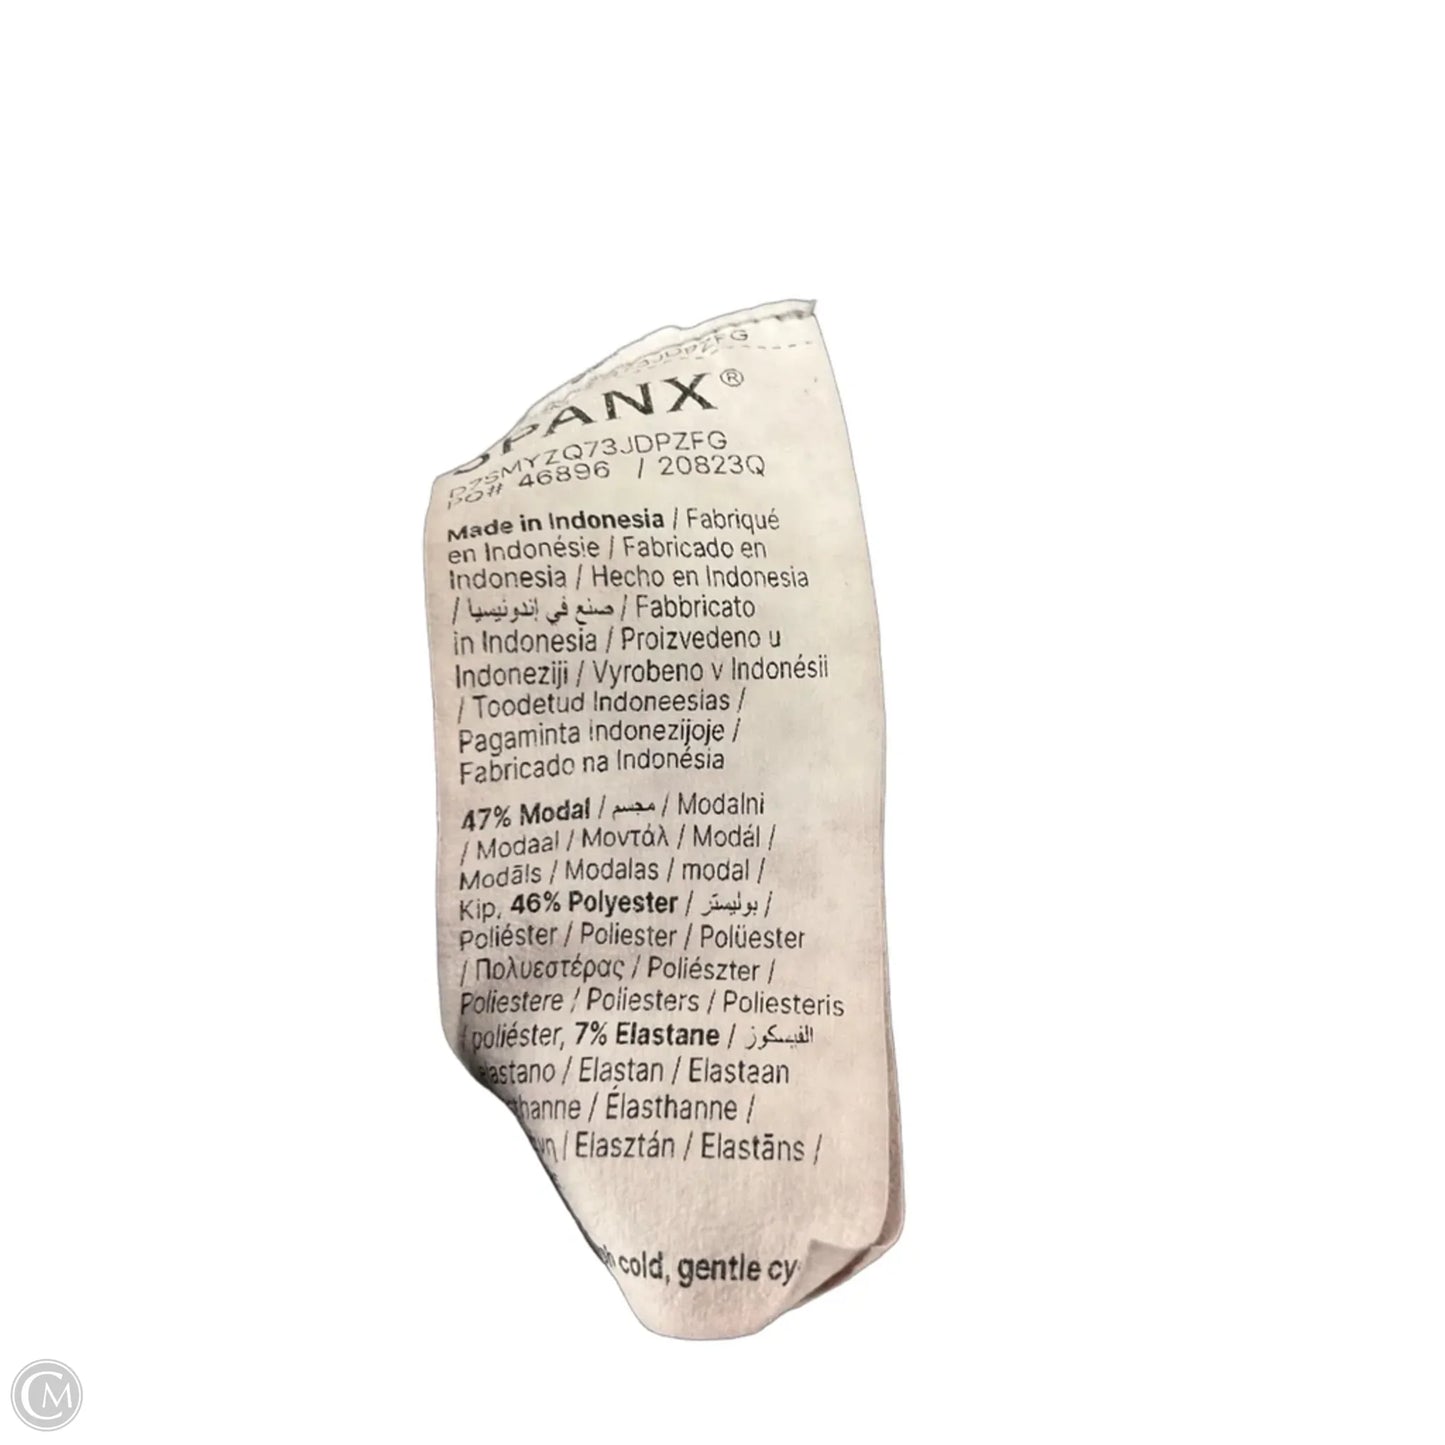 SPANX®
DZSMYZQ73JDPZFG
PO# 46896 / 20823Q
Made in Indonesia / Fabriqué
en Indonésie / Fabricado en
Indonesia / Hecho en Indonesia
/ صنع في إندونيسيا / Fabbricato
in Indonesia / Proizvedeno u
Indoneziji / Vyrobeno v Indonésii
/ Toodetud Indoneesias /
Pagaminta Indonezijoje /
Fabricado na Indonésia
47% Modal / مجسم / Modalni
/ Modaal / Μοντάλ / Modál /
Modāls / Modalas / modal /
Kip, 46% Polyester / بوليستر /
Poliéster / Poliester / Polüester
/ Πολυεστέρας / Poliészter /
Poliestere / Poliesters / Poliesteris
/ poliéster, 7% Elastane / الفيسكوز
elastano / Elastan / Elastaan
/ Élasthanne /
/ Elasztán / Elastāns /
cold, gentle
CM